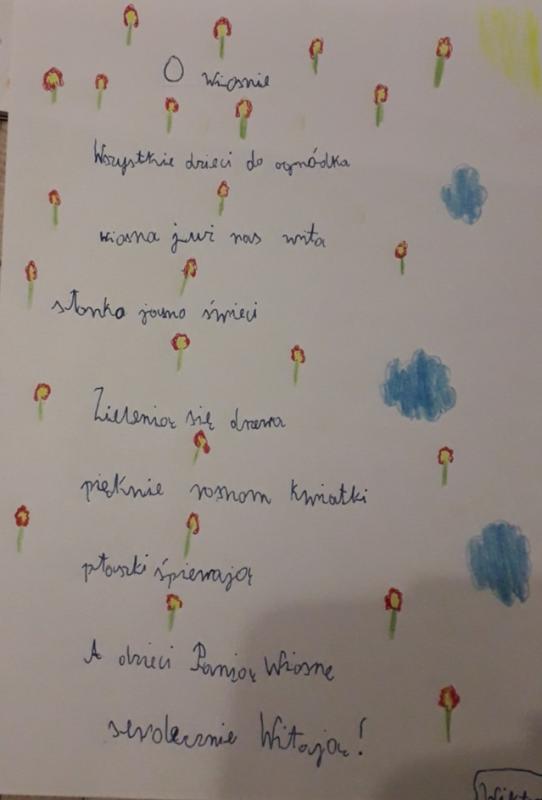 O wiosnie
Wszystkie dzieci do ogródka
wiosna już nas wita
słonko jasno świeci
Zielenią się drzewa
pięknie rosnom kwiatki
ptaszki śpiewają
A dzieci Panią Wiosnę
serdecznie Witają!